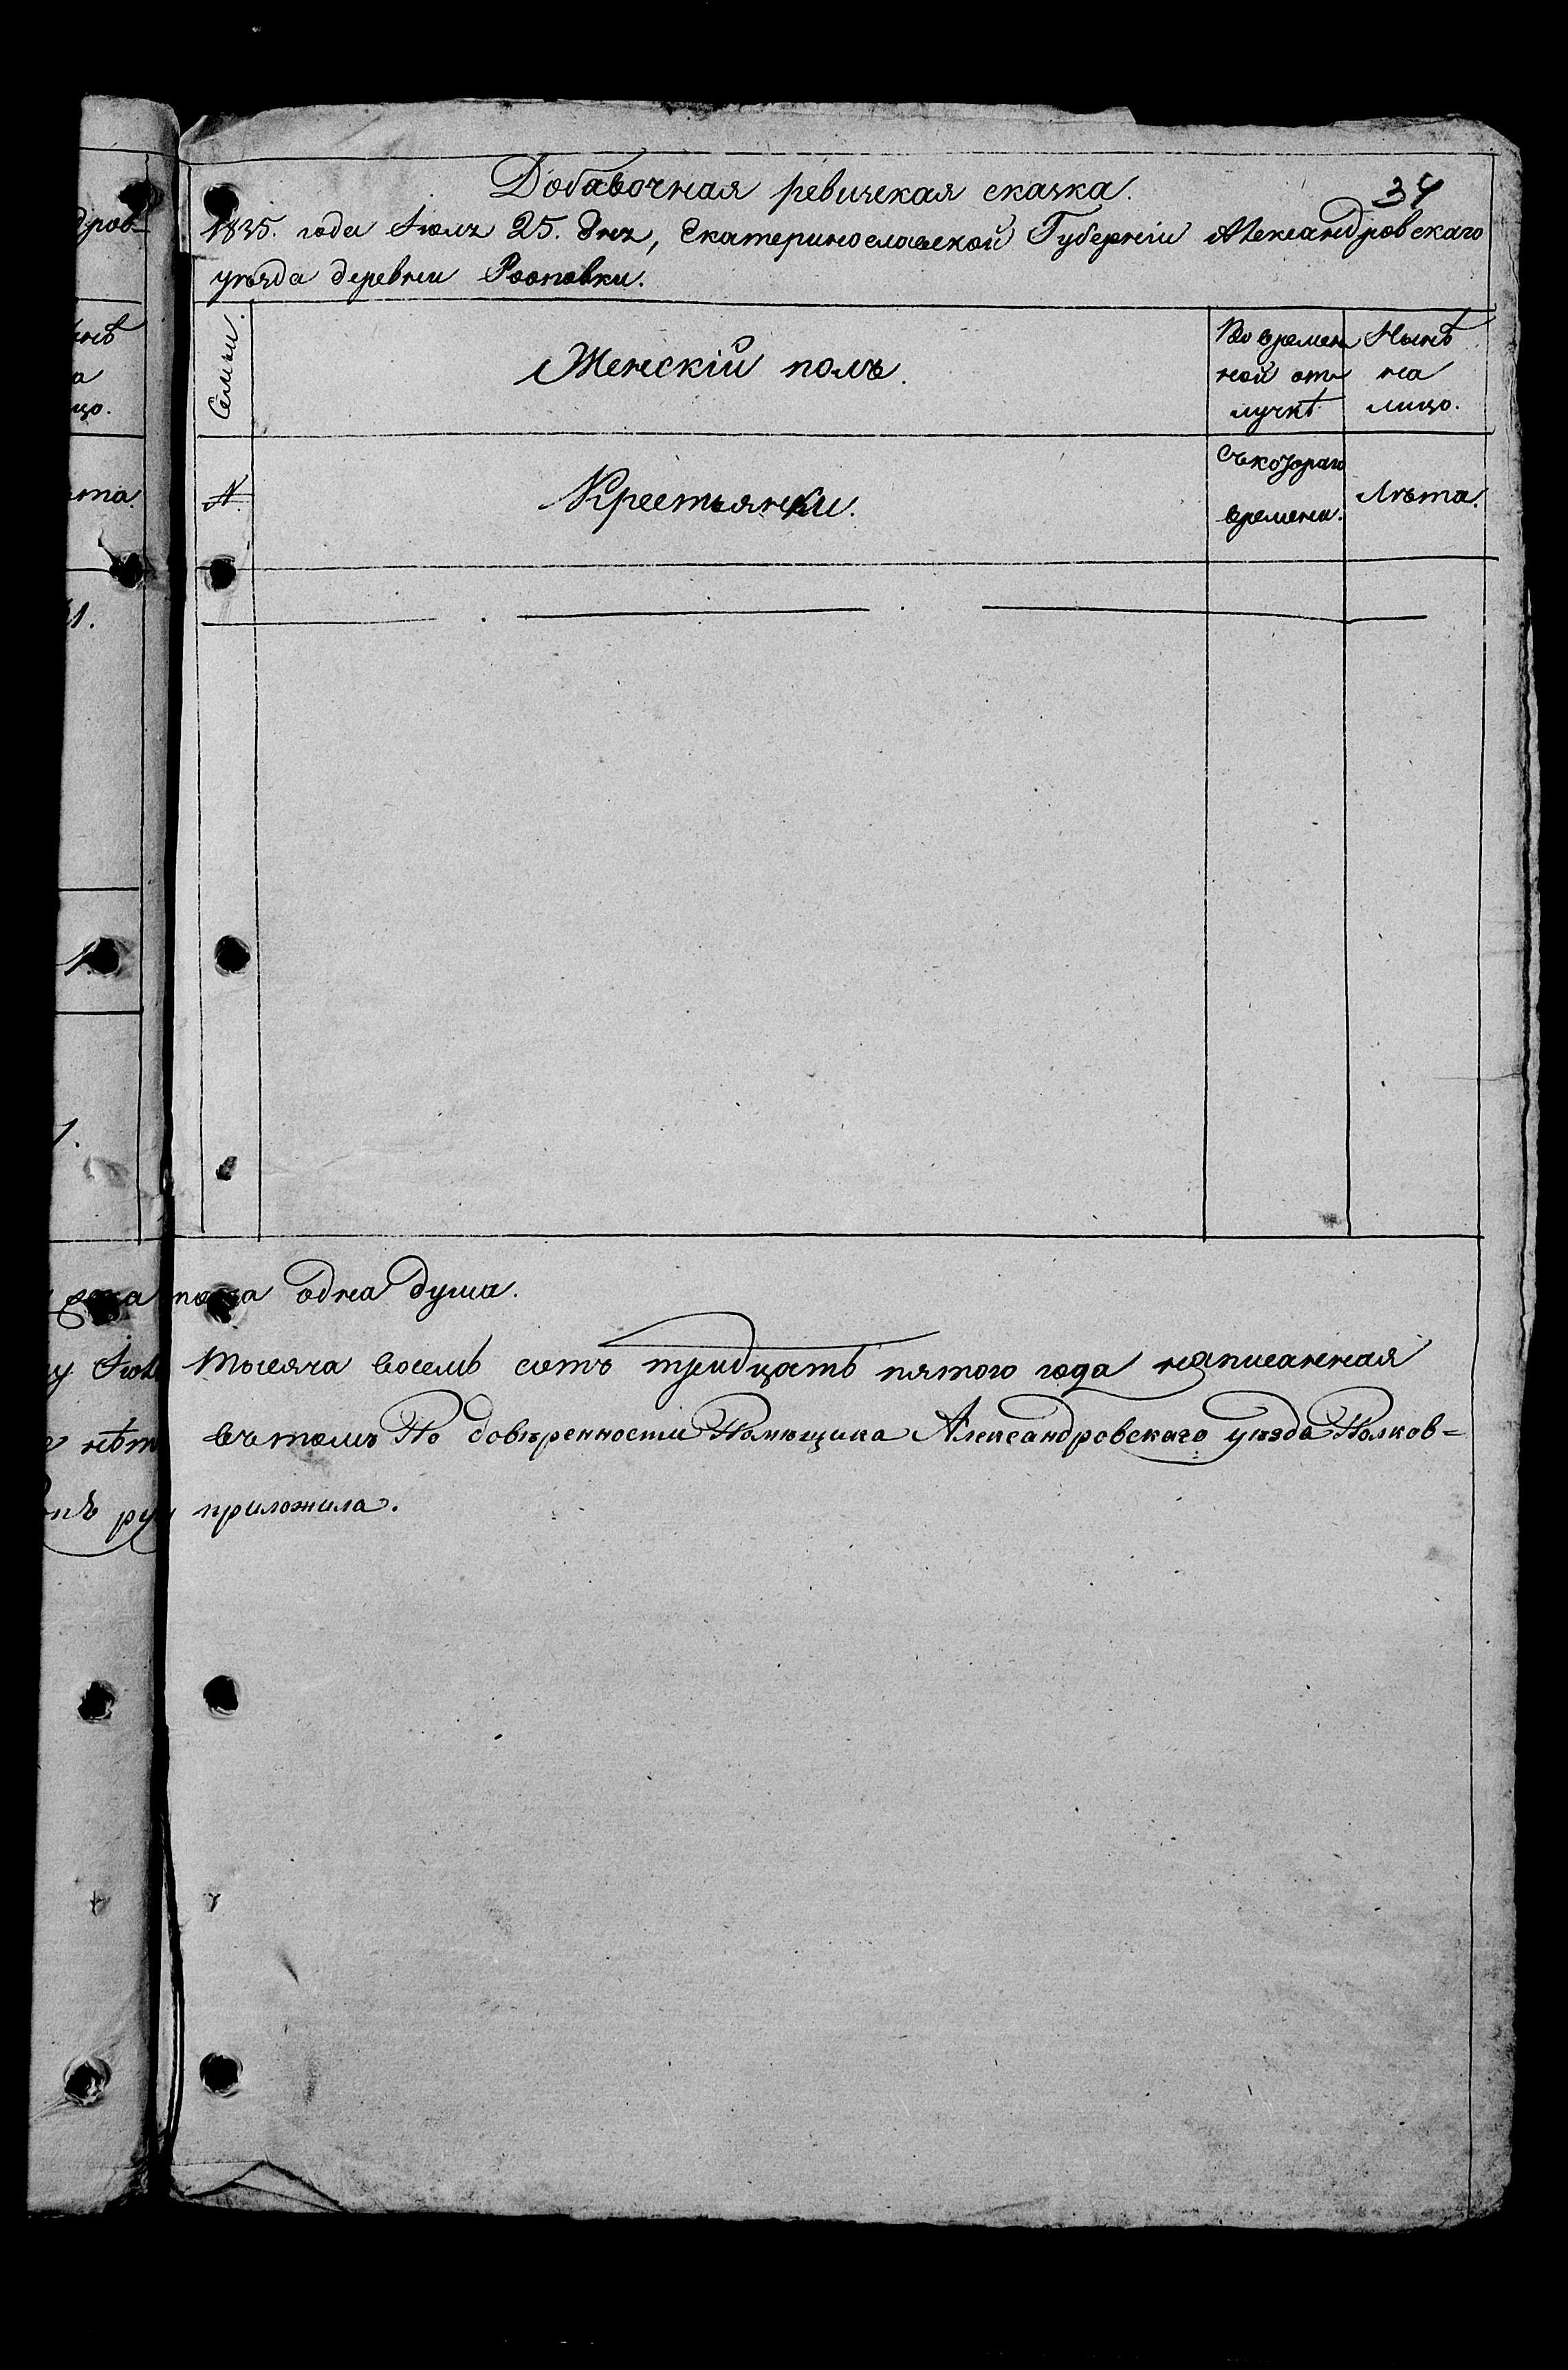 Добавочная ревизская сказка.
34
1835. года Июля 25. дня, Екатеринославской Губерніи Александровскаго
уѣзда деревни Рооповки.
дров-
Семьи.
Женскій полъ.
Во времен
ной от-
лучкѣ
Нынѣ
на
лицо.
цо.
№
Крестьянки.
Съ котораго
времени.
Лѣта.
ѣта.
1.
1.
1.
пола одна душа.
Тысяча восемь сотъ тридцать пятого года написанная
въ томъ По довѣренности Помѣщика Александровскаго уѣзда Полков=
приложила.